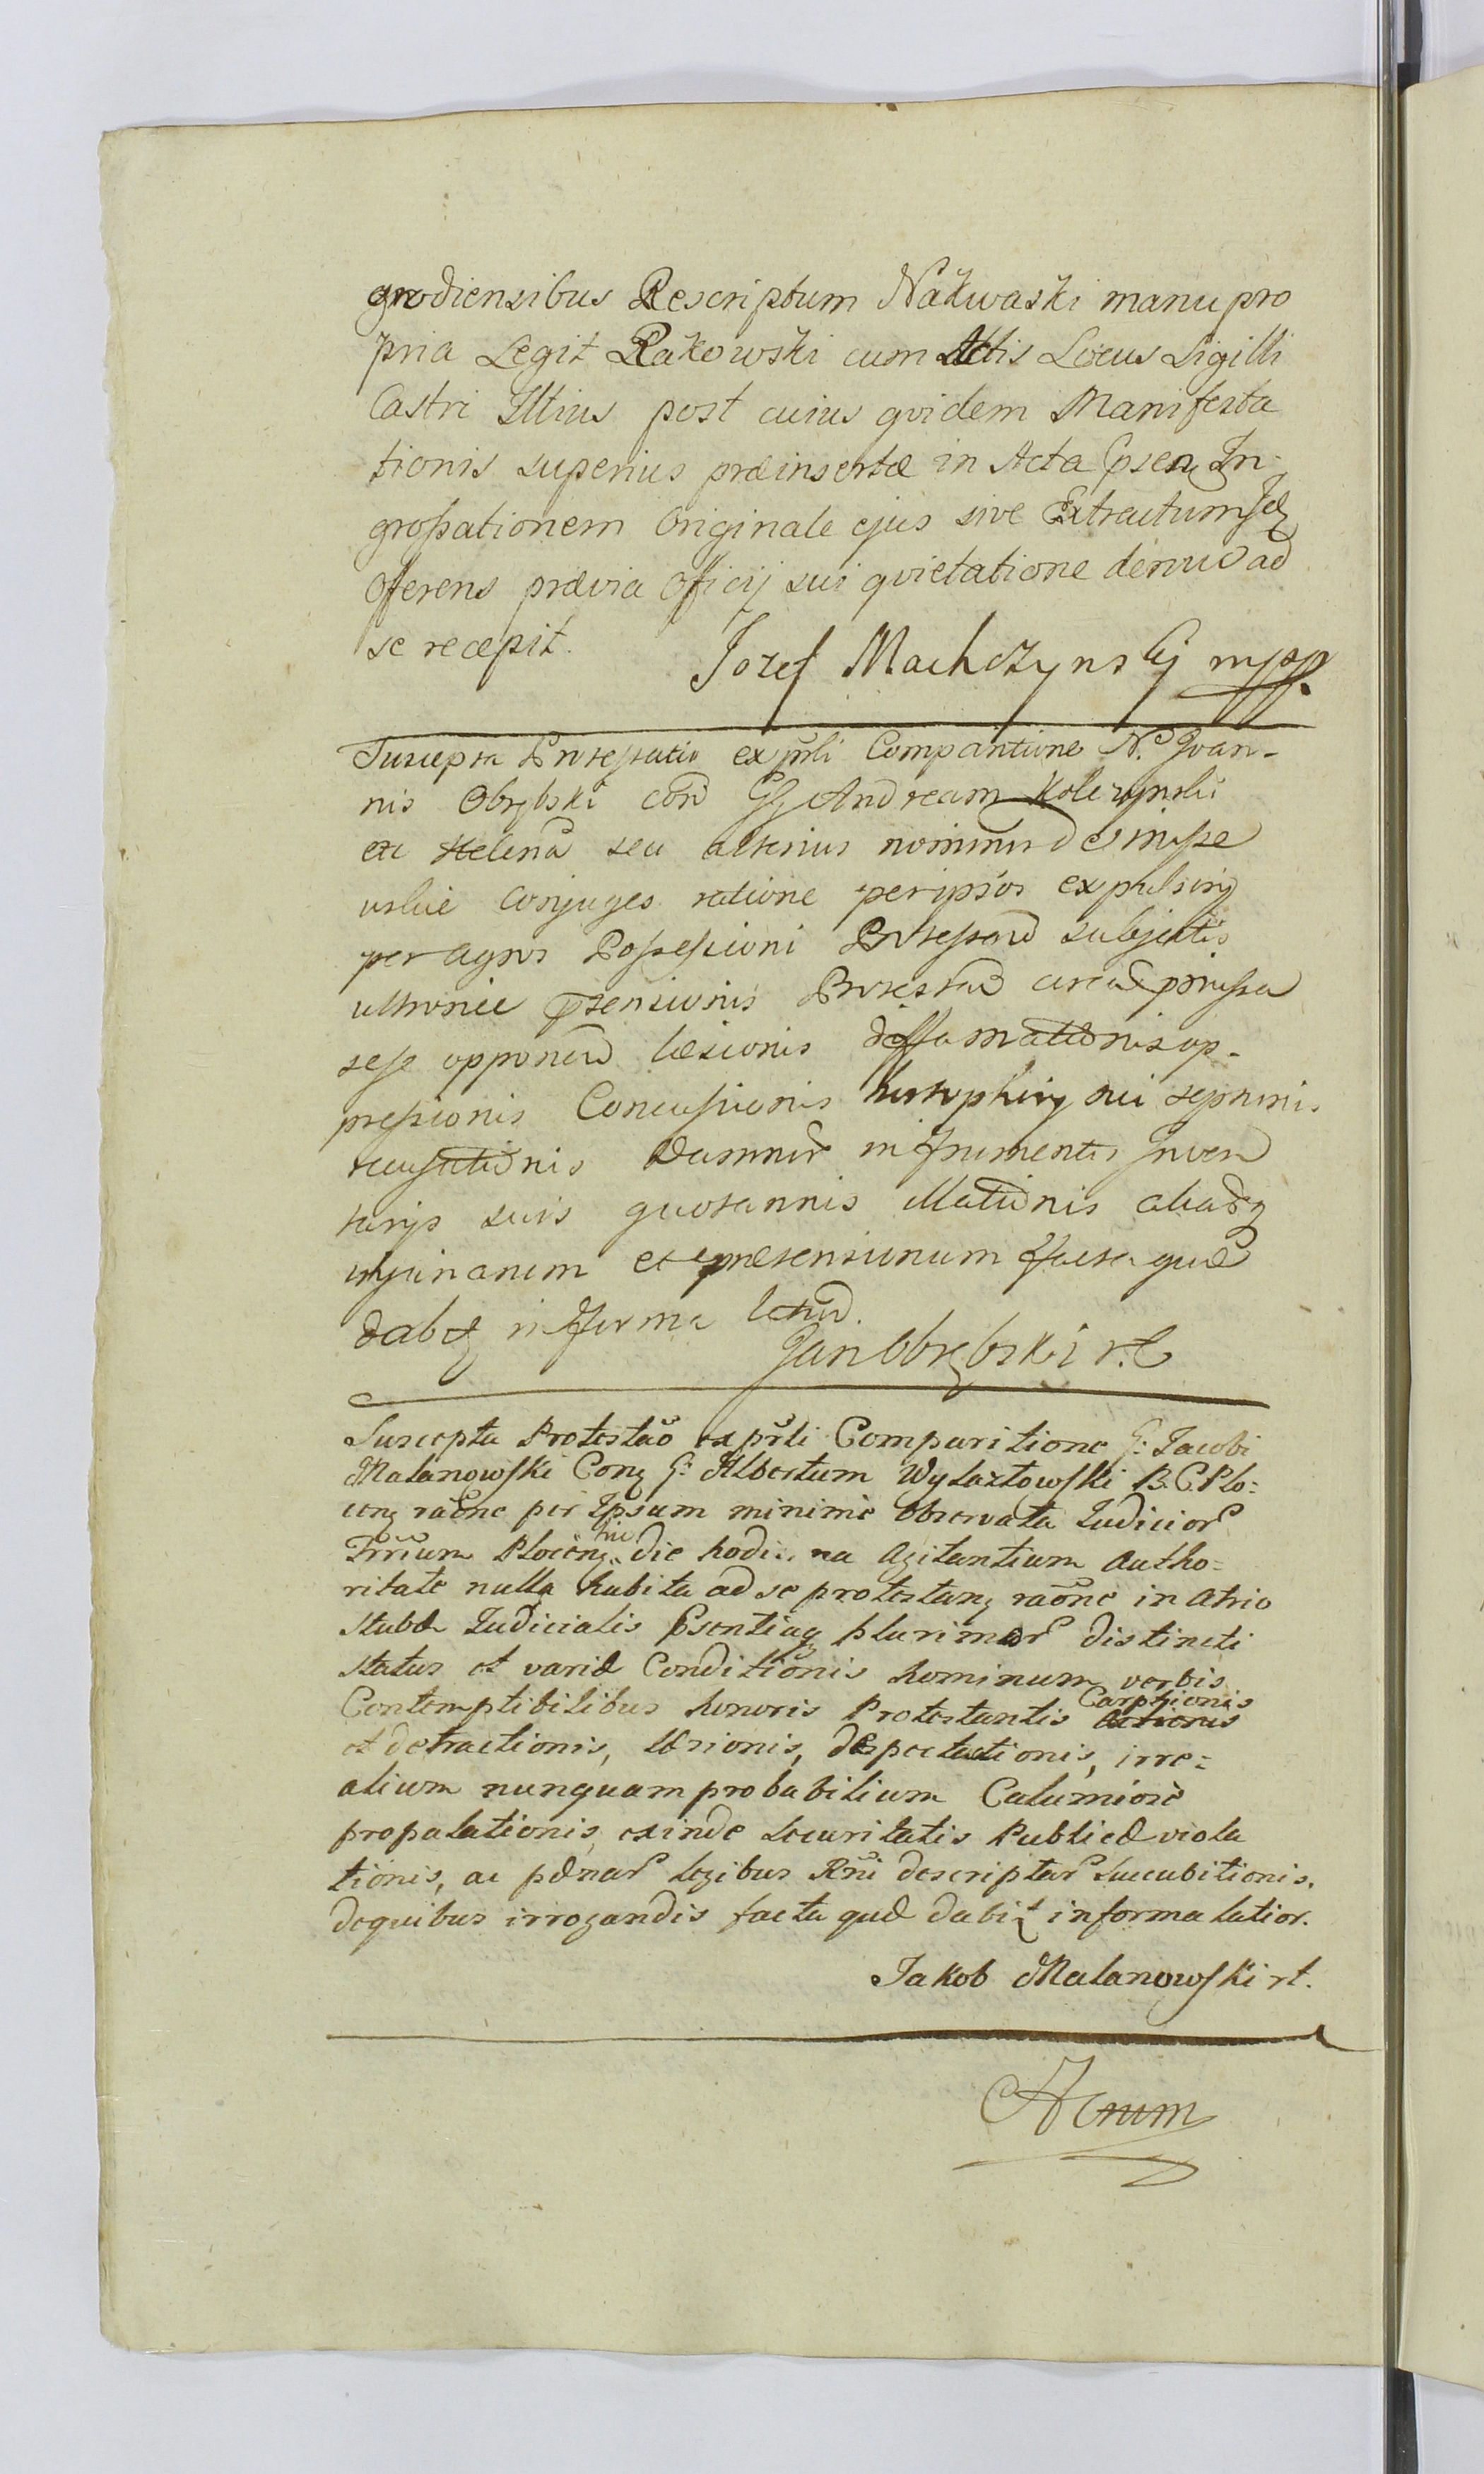 grodiensibus Rescriptum Nakwaski manu pro
pria Legit Rakowski cum Actis Locus Sigilli
Castri Illius post cuius qvidem Manifesta
tionis superius præinsertæ in Acta Psen In-
grossationem Originale ejus sive Extractum Idq
Offerens prævia Officij sui qvietatione denuo ad
se recepit.
Jozef Machczynskj mpp.
Suscepta Protestatio ex prsli Comparitione N. Joan-
nis Obrębski con GG Andream
et Helena seu alterius nominis de
conjuges ratione per ipsos
per agros Possessioni Protestan subjectis
ultronee Ptensionis Protestan circa præmissa
sese opponen læsionis deffamationis op-
pressionis Concussionis sui
Damnor in frumentis Inven
tarijs suis quotannis illationis aliarq
injuriarum et prætensionum facta quæ
dabit in fforma
Jan Obrębski rt
Suscepta Protestao ex prsli Comparitione G: Jacobi
Malanowski Conq G: Albertum Wylaztowski B.C.Plo:
cenq raone per Ipsum minime observata Iudicior
Trrium Plocenq hic die hodierna Agitantium Autho-
ritate nulla habita ad se protestanq raone in atrio
stubæ Iudicialis Psentiaq plurimor distincti
status et variæ Conditionis hominum verbis
Contemptibilibus honoris Protestantis Carptionis
et detractionis, læsionis, despectationis, irre-
alium nunquam probabilium Calumiore
propalationis, exinde securitatis Publicæ viola
tionis, ac pænar legibus Rni descriptar succubitionis.
dequibus irrogandis facta quæ dabit in forma latior.
Jakob Malanowski rt.